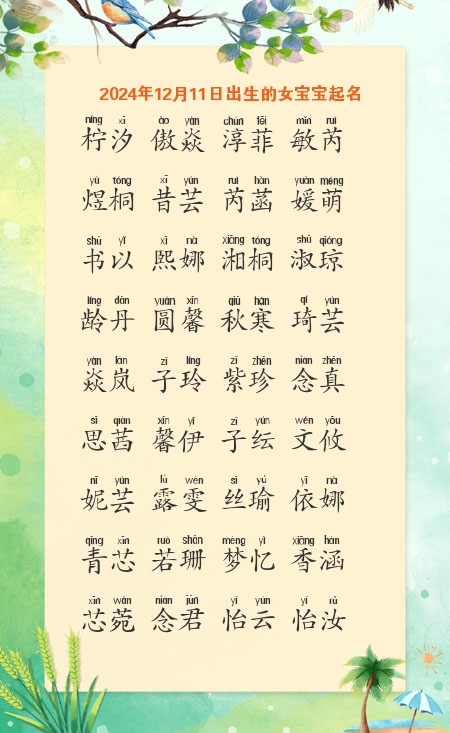 2024年12月11日出生的女宝宝起名
níng xī ào yàn chún fēi mǐn ruì
柠汐 傲焱 淳菲 敏芮
yù tóng xī yún ruì hàn yuàn méng
煜桐 昔芸 芮菡 媛萌
shū yǐ xī nà xiāng tóng shū qióng
书以 熙娜 湘桐 淑琼
líng dān yuán xīn qiū hán qí yún
龄丹 圆馨 秋寒 琦芸
yàn lán zǐ líng zǐ zhēn niàn zhēn
焱岚 子玲 紫珍 念真
sī qiàn xīn yī zǐ yún wén yōu
思茜 馨伊 子纭 文攸
nī yún lù wén sī yú yī nà
妮芸 露雯 丝瑜 依娜
qīng xīn ruò shān mèng yì xiāng hán
青芯 若珊 梦忆 香涵
xīn wǎn niàn jūn yí yún yí rǔ
芯菀 念君 怡云 怡汝